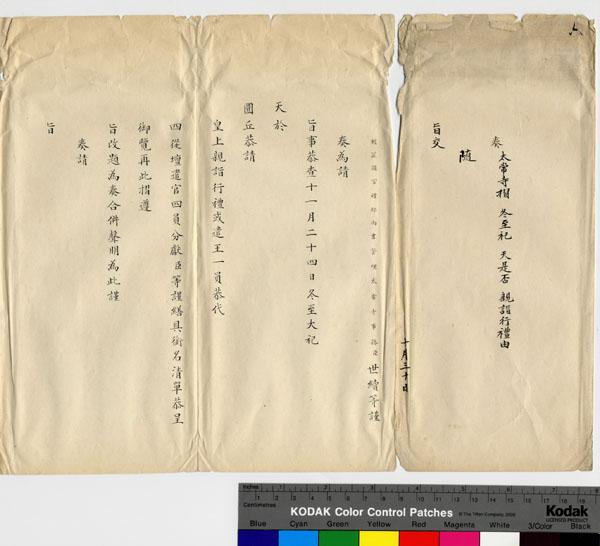 奏
太常寺摺 冬至祀 天是否 親詣行禮由
隨
旨交
十月三十日
世續等謹
奏為請
旨事恭查十一月二十四日冬至大祀
天於
圜丘恭請
皇上親詣行禮或遣王一員恭代
四從壇遣官四員分獻臣等謹繕具銜名清單恭呈
御覽再此摺遵
旨改題為奏合併聲明為此謹
奏請
旨
Inches
Centimetres
KODAK Color Control Patches
© The Tiffen Company, 2000
Kodak
LICENSED PRODUCT
Blue Cyan Green Yellow Red Magenta White 3/Color Black